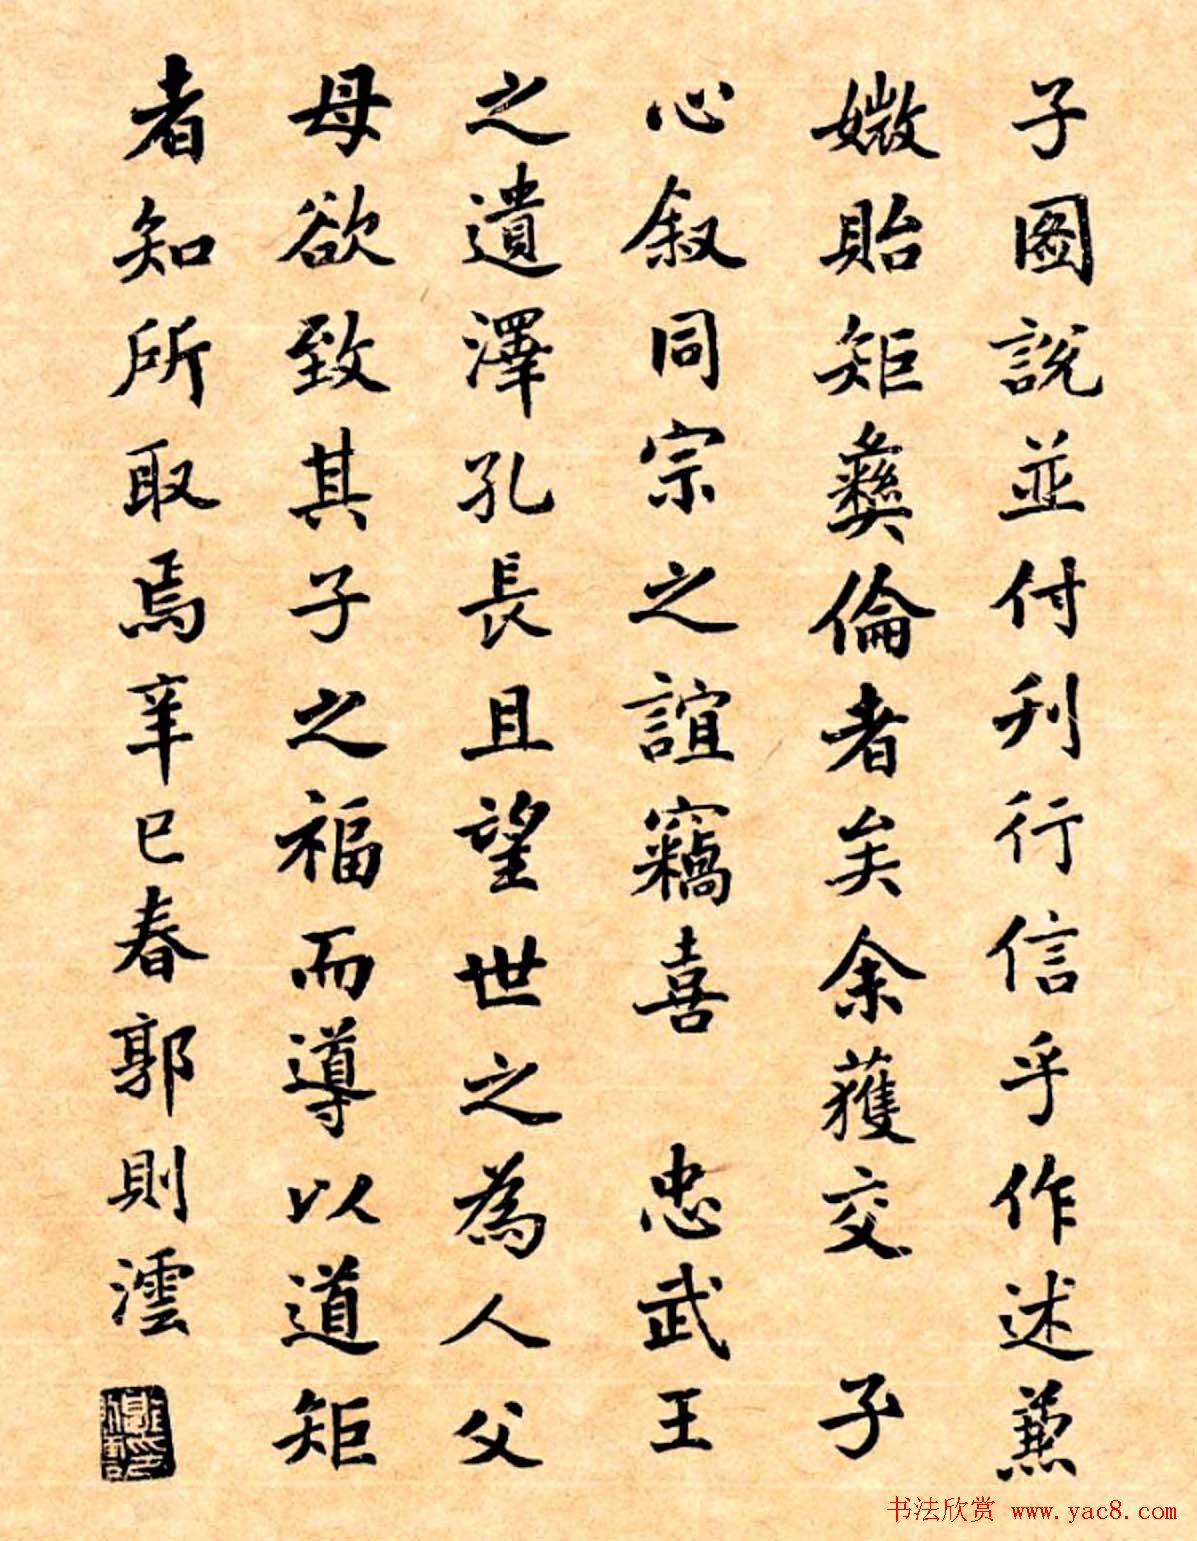 子圖說並付刊行信乎作述兼
媺貽矩彝倫者矣余獲交　子
心叙同宗之誼竊喜　忠武王
之遺澤孔長且望世之為人父
母欲致其子之福而導以道矩
者知所取焉辛巳春郭則澐
书法欣赏 www.yac8.com